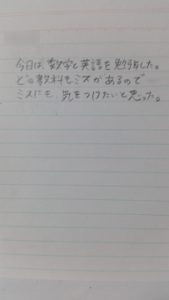 今日は、数学と英語を勉強した。
どの教科もミスがあるので
ミスにを、気をつけたいと思った。